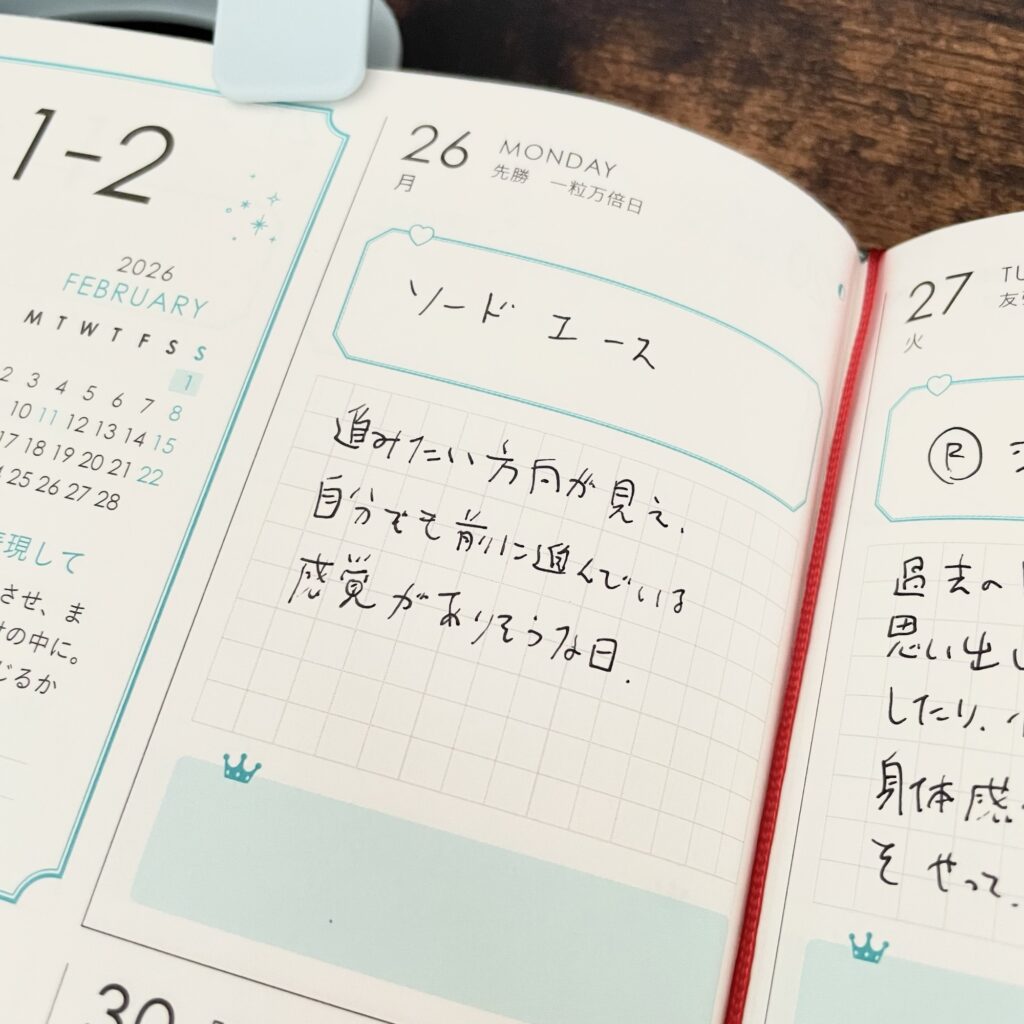 1-2
2026
FEBRUARY
M T W T F S S
1
2 3 4 5 6 7 8
10 11 12 13 14 15
17 18 19 20 21 22
25 26 27 28
現して
させ、ま
の中に。
じるか
26 MONDAY
月 先勝 一粒万倍日
ソード エース
進みたい方向が見え、
自分でも前に進んでいる
感覚がありそうな日.
30
27 TU
火 友
R
過去の
思い出し
したり、
身体感
そやって、